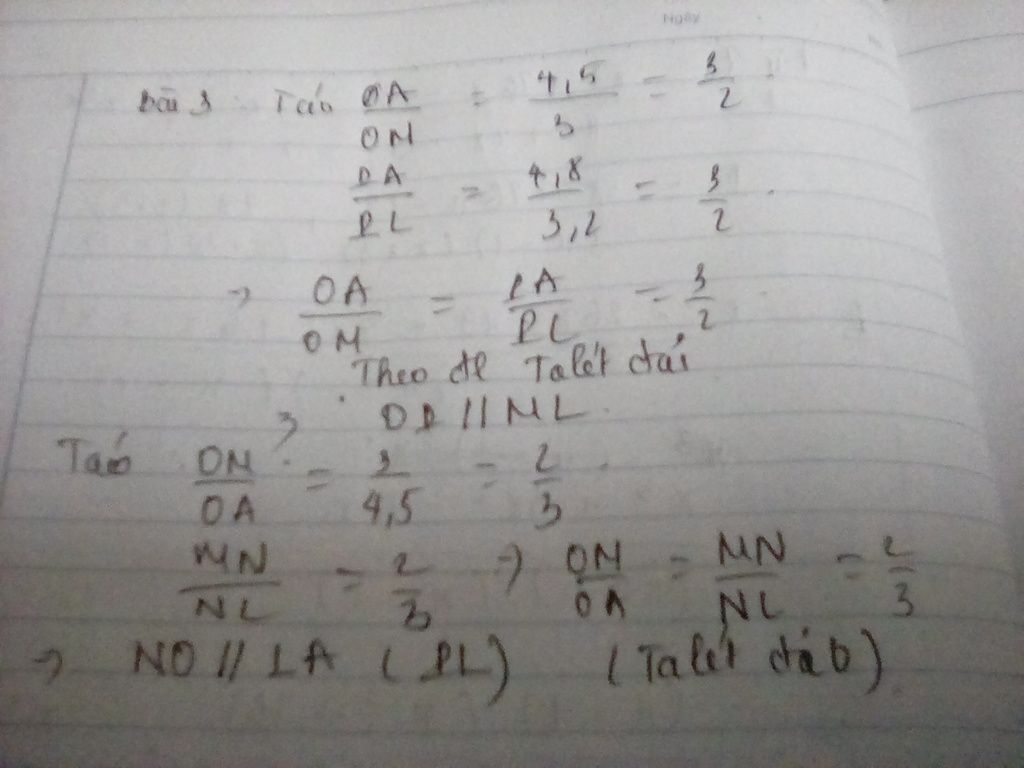 Ngày
Bài 3 Ta có OA/OM = 4,5/3 = 3/2
DA/DL = 4,8/3,2 = 3/2
→ OA/OM = DA/DL = 3/2
Theo đl Talét đảo
→ OD // ML
Ta có OM/OA = 3/4,5 = 2/3
MN/NL = 2/3 → OM/OA = MN/NL = 2/3
→ NO // LA (DL) (Talét đảo)